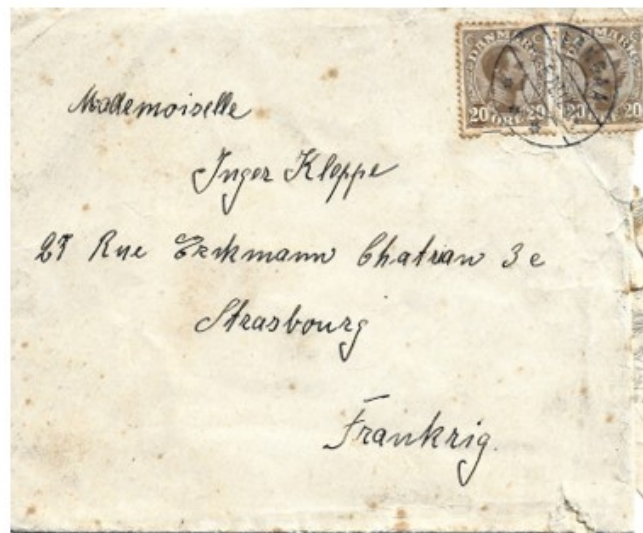 DANMARK
20 ØRE 20
DANMARK
20 20
Mademoiselle
Inger Kleppe
Rue Erckmann Chatrian 3e
Strasbourg
Frankrig.